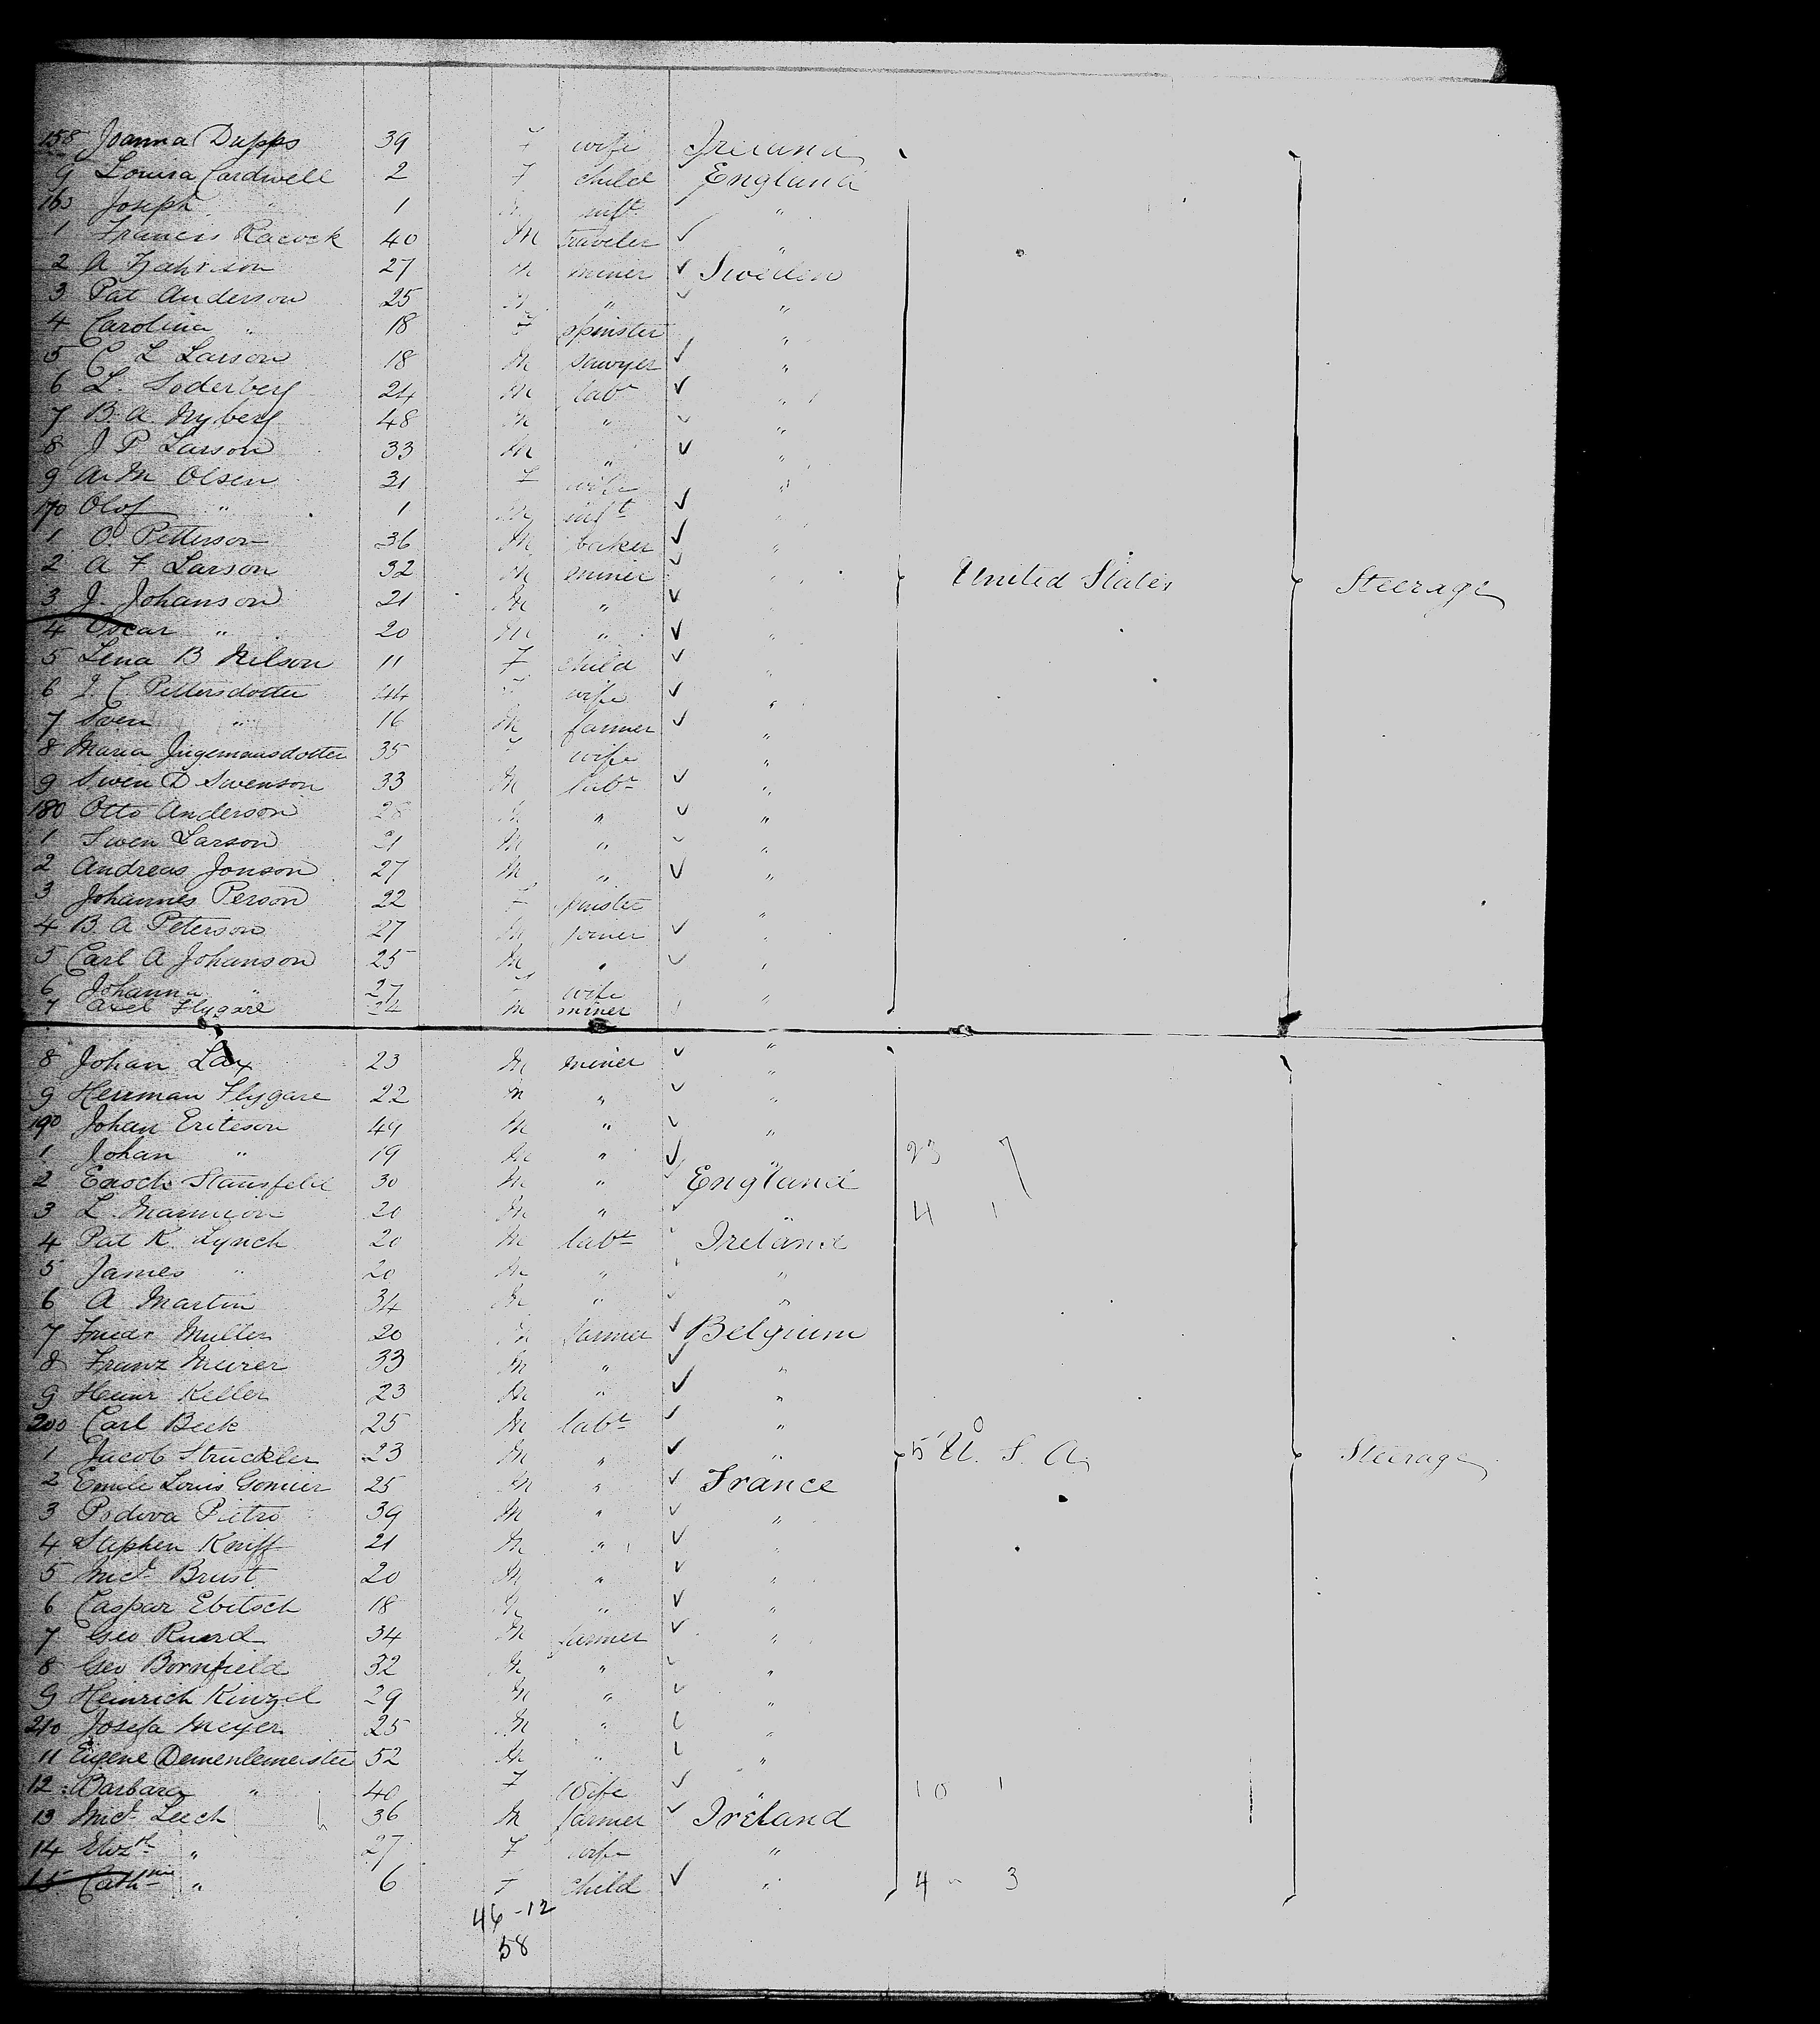 158 Joanna Dupps 39 F wife Ireland
9 Louisa Cardwell 2 F child England
160 Joseph " 1 M inft "
1 Francis Racock 40 M traveler ✓ "
2 A 27 M miner ✓ Sweden
3 Pat Anderson 25 M " ✓ "
4 Carolina " 18 F spinster "
5 C L Larson 18 M sawyer ✓ "
6 L. Soderberg 24 M labr ✓ "
7 B. A Nyberg 48 M " ✓ "
8 J P Larson 33 M " ✓ "
9 A. M Olsen 31 F wife "
170 Olof " 1 M inft ✓ "
1 O. Petterson 36 M baker ✓ "
2 A F Larson 32 M miner ✓ " United States Steerage
3 J. Johanson 21 M " ✓ "
4 Oscar " 20 M " ✓ "
5 Lena B Nilson 11 F child ✓ "
6 I C Pettersdotter 44 F wife ✓ "
7 Sven " 16 M farmer ✓ "
8 Maria Jngemansdotter 35 F wife "
9 Swen D Swenson 33 M labr ✓ "
180 Otto Anderson 28 M " ✓ "
1 Swen Larson 21 M " ✓ "
2 Andreas Jonson 27 M " ✓ "
3 Johannes Person 22 F spinster "
4 B A Peterson 27 M joiner ✓ "
5 Carl A Johanson 25 M " ✓ "
6 Johanna " 27 F wife "
7 Axel Flygare 24 M miner "
8 Johan Lax 23 M miner ✓ "
9 Herrman Flygare 22 M " ✓ "
190 Johan Ericson 49 M " ✓ "
1 Johan " 19 M " ✓ " 23 7
2 Enoch Stansfeld 30 M " England
3 L. Marmion 20 M " " 4 1
4 Pat K. Lynch 20 M labr Ireland
5 James " 20 M " "
6 A Martin 34 M " "
7 Friedr Muller 20 M farmer ✓ Belgium
8 Franz Meirer 33 M " ✓ "
9 Heinr Keller 23 M " ✓ "
200 Carl Beck 25 M labr ✓ "
1 Jacob Struckler 23 M " ✓ " 5 0 U. S. A. Steerage
2 Emile Louis Gomier 25 M " ✓ France
3 Podova Pietro 39 M " ✓ "
4 Stephen Kniff 21 M " ✓ "
5 Micl Brust 20 M " ✓ "
6 Caspar Ebitsch 18 M " ✓ "
7 Geo Ruard 34 M farmer ✓ "
8 Geo Bornfield 32 M " ✓ "
9 Heinrich Kinzel 29 M " ✓ "
210 Josefa Meyer 25 M " "
11 Eugene Dementemeister 52 M " "
12 Barbara " 40 F wife ✓ " 10 1
13 Micl Leech 36 M farmer ✓ Ireland
14 Elizth " 27 F wife "
15 Cathrine " 6 F child ✓ " 4 3
46-12
58